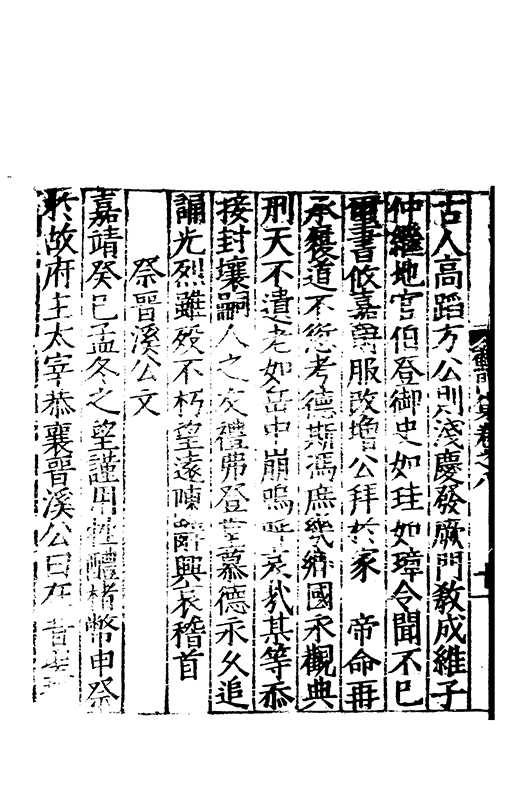 古人高蹈方公則淺慶發厥門敎成維子
仲繼地官伯登御史如珪如璋令聞不已
璽書攸嘉爵服改增公拜於家 帝命再
承耇道不愆考德斯馮庶幾鄉國永觀典
刑天不遺老如岳中崩嗚呼哀哉某等忝
接封壤嗣人之友禮弗登堂慕德永久追
誦光烈雖歿不朽望遠陳辭興哀稽首
祭晉溪公文
嘉靖癸巳孟冬之望謹用牲醴楮幣申祭
於故府主太宰恭襄晉溪公曰在昔